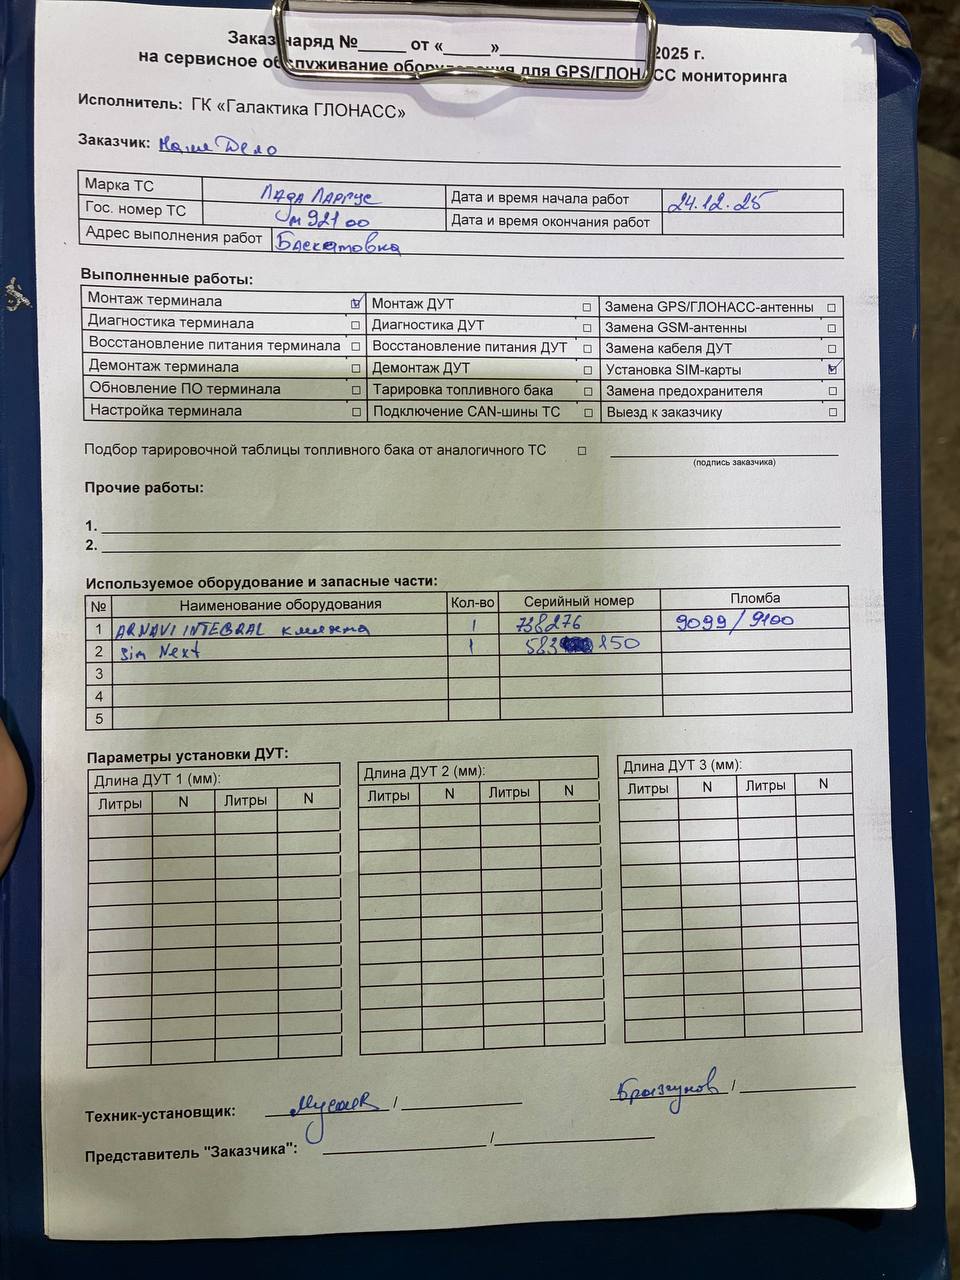 Заказ-наряд №_____ от «____»______________2025 г.
на сервисное обслуживание оборудования для GPS/ГЛОНАСС мониторинга
Исполнитель: ГК «Галактика ГЛОНАСС»
Заказчик: Наше Дело
Марка ТС Лада Ларгус Дата и время начала работ 24.12.25
Гос. номер ТС м 921 оо Дата и время окончания работ
Адрес выполнения работ Баскатовка
Выполненные работы:
Монтаж терминала ☑ Монтаж ДУТ □ Замена GPS/ГЛОНАСС-антенны □
Диагностика терминала □ Диагностика ДУТ □ Замена GSM-антенны □
Восстановление питания терминала □ Восстановление питания ДУТ □ Замена кабеля ДУТ □
Демонтаж терминала □ Демонтаж ДУТ □ Установка SIM-карты ☑
Обновление ПО терминала □ Тарировка топливного бака □ Замена предохранителя □
Настройка терминала □ Подключение CAN-шины ТС □ Выезд к заказчику □
Подбор тарировочной таблицы топливного бака от аналогичного ТС □
(подпись заказчика)
Прочие работы:
1.
2.
Используемое оборудование и запасные части:
№ Наименование оборудования Кол-во Серийный номер Пломба
1 ARNAVI INTEGRAL 1 738276 9099/9100
2 Sim Next 1 583 850
3
4
5
Параметры установки ДУТ:
Длина ДУТ 1 (мм): Длина ДУТ 2 (мм): Длина ДУТ 3 (мм):
Литры N Литры N Литры N Литры N Литры N Литры N
Техник-установщик: / Брызгунов /
Представитель "Заказчика": /